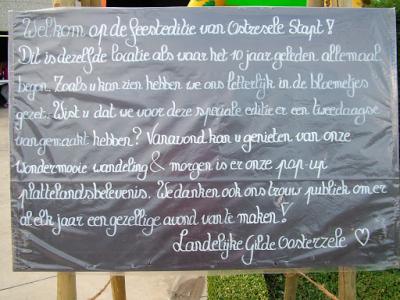 Welkom op de feesteditie van Oostrezele Stapt!
Dit is dezelfde locatie als waar het 10 jaar geleden allemaal
begon. Zoals u kan zien hebben we ons letterlijk in de bloemetjes
gezet. Wist u dat we voor deze speciale editie er een tweedaagse
van gemaakt hebben? Vanavond kan u genieten van onze
wondermooie wandeling & morgen is er onze pop-up
plattelandsbelevenis. We danken ook ons trouw publiek om er
al elk jaar een gezellige avond van te maken!
Landelijke Gilde Oosterzele ♡